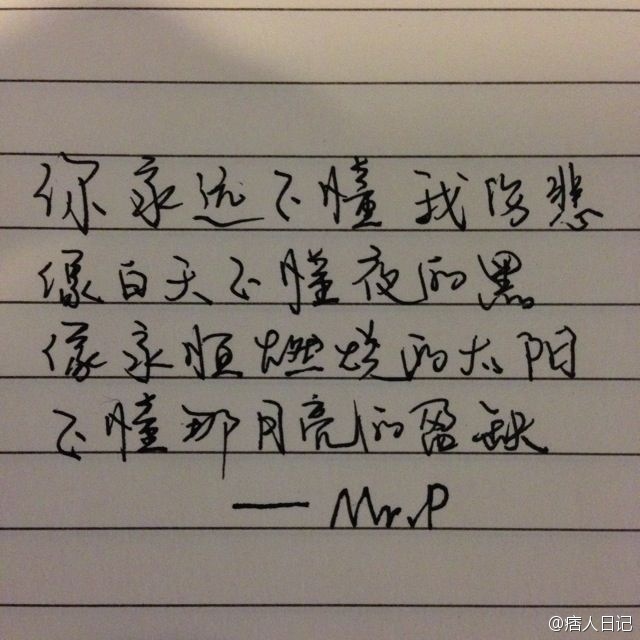 你永远不懂我伤悲
像白天不懂夜的黑
像永恒燃烧的太阳
不懂那月亮的盈缺
—— Mr.P
@痞人日记